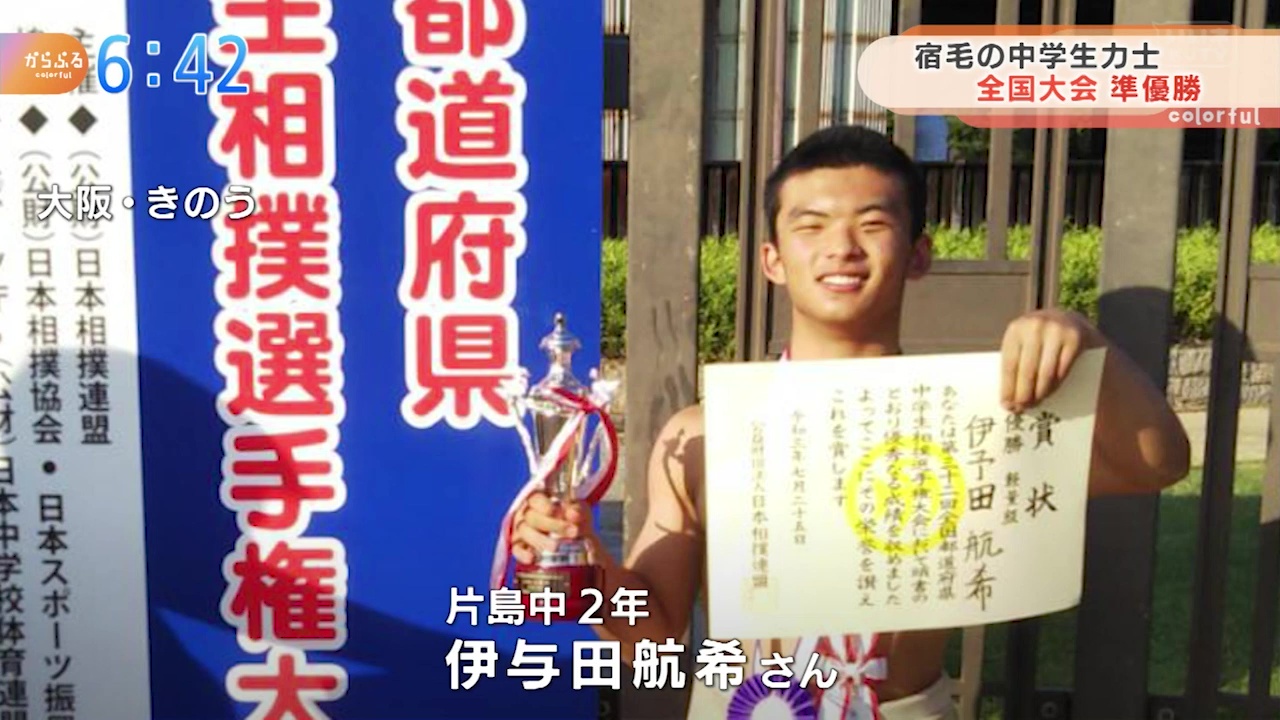 からふる
colorful
6:42
宿毛の中学生力士
全国大会 準優勝
colorful
大阪・きのう
都道府県
生相撲選手権大
主
権
◆(公財)日本相撲連盟
◆(公財)日本相撲協会・日本スポーツ振
(公財)日本中学校体育連
賞状
優勝 軽量級
伊予田 航希
あなたは第三十二回全国都道府県
中学生相撲選手権大会に於いて頭書の
とおり優秀なる成績を収めました
よってここにその栄誉を讃え
これを賞します
令和三年七月二十五日
公益財団法人日本相撲連盟
片島中2年
伊与田航希さん